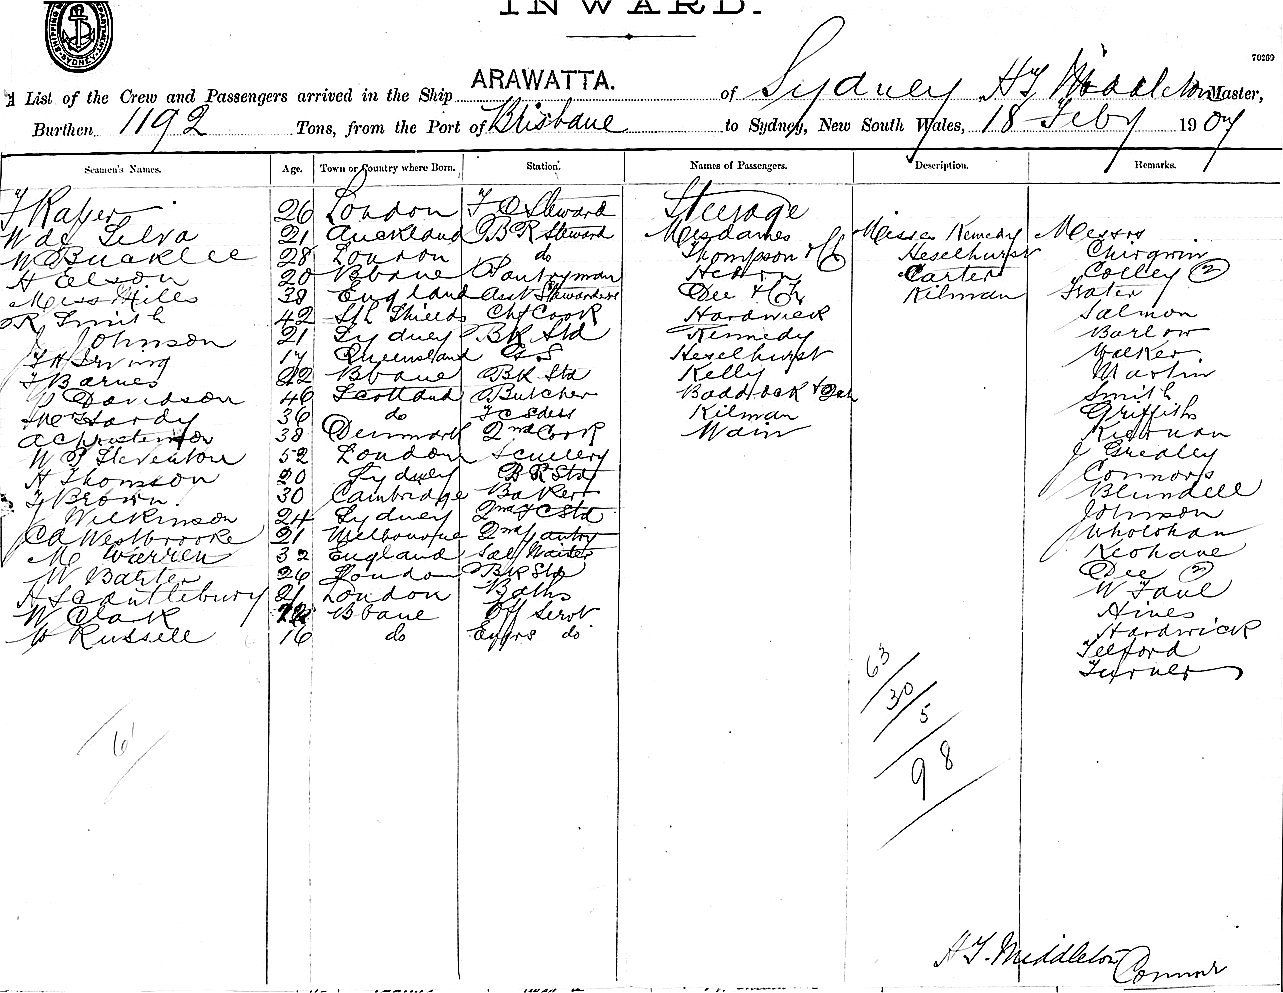 INWARD.
70299
ARAWATTA.
A List of the Crew and Passengers arrived in the Ship ARAWATTA. of Sydney H T Middleton Master,
Burthen 1192 Tons, from the Port of Brisbane to Sydney, New South Wales, 18 Feby 1907
Seamen's Names. Age. Town or Country where Born. Station. Names of Passengers. Description. Remarks.
26 London F C Steward Steerage
W de Silva 21 Auckland B R Steward Mesdames Misses Kennedy Messrs
W Bucklee 28 London do Thompson & Ch Heselhurst Chirgwin
H Elson 20 Bbane Pantryman Heron Carter Colley 2
Miss Mills 38 England Asst Stewardess Dee & Ch Kilman Frater
R Smith 42 Sth Shields Chf Cook Hardwick Salmon
J Johnson 21 Sydney B R Std Kennedy Barlow
F H Irving 17 Queensland G S Heselhurst Walker
F Barnes 22 Bbane B R Std Kelly Martin
Davidson 46 Scotland Butcher Baddock & Smith
Hardy 36 do F C Stdess Kilman Griffiths
A Christensen 38 Denmark 2nd Cook Wain Kiernan
W P Steventon 52 London Scullery J Gredley
H Thomson 20 Sydney B R Std Connors
F Brown 30 Cambridge Baker Blundell
J Wilkinson 24 Sydney 2nd F C Std Johnson
C A Westbrooke 21 Melbourne 2nd Pantry Wholohan
M Warren 32 England Sal Waiter Keohane
W Baxter 26 London B R Std Dee 2
H Scantlebury 21 London Baths W Faul
W Clark Bbane Off Servt Hines
W Russell 16 do Engrs do Hardwick
Telford
Turner
63
30
5
98
6
H T. Middleton
Connor